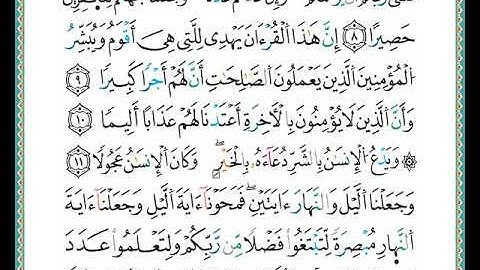 حَصِيرًا ٨ إِنَّ هَٰذَا ٱلْقُرْءَانَ يَهْدِى لِلَّتِى هِىَ أَقْوَمُ وَيُبَشِّرُ
ٱلْمُؤْمِنِينَ ٱلَّذِينَ يَعْمَلُونَ ٱلصَّـٰلِحَـٰتِ أَنَّ لَهُمْ أَجْرًا كَبِيرًا ٩
وَأَنَّ ٱلَّذِينَ لَا يُؤْمِنُونَ بِٱلْـَٔاخِرَةِ أَعْتَدْنَا لَهُمْ عَذَابًا أَلِيمًا ١٠
۞ وَيَدْعُ ٱلْإِنسَـٰنُ بِٱلشَّرِّ دُعَآءَهُۥ بِٱلْخَيْرِ ۖ وَكَانَ ٱلْإِنسَـٰنُ عَجُولًا ١١
وَجَعَلْنَا ٱلَّيْلَ وَٱلنَّهَارَ ءَايَتَيْنِ ۖ فَمَحَوْنَآ ءَايَةَ ٱلَّيْلِ وَجَعَلْنَآ ءَايَةَ
ٱلنَّهَارِ مُبْصِرَةً لِّتَبْتَغُوا۟ فَضْلًا مِّن رَّبِّكُمْ وَلِتَعْلَمُوا۟ عَدَدَ